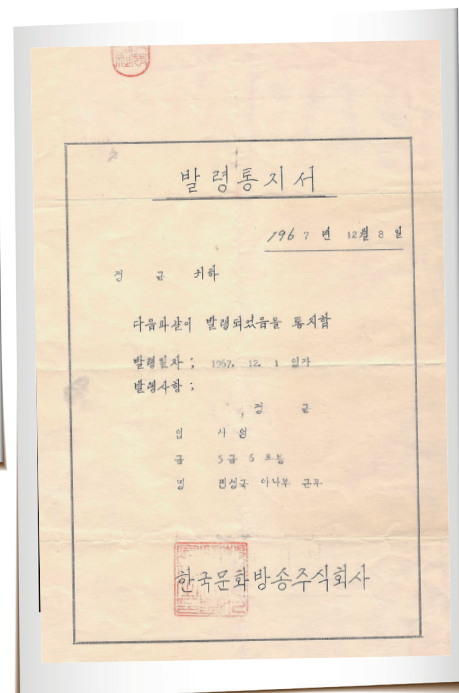 발령통지서
1967 년 12월 8 일
정 균 귀하
다음과같이 발령되었음을 통지함
발령일자 ; 1967. 12. 1 일자
발령사항 ;
정 균
임 사원
급 5급 6 호봉
명 편성국 아나부 근무
한국문화방송주식회사